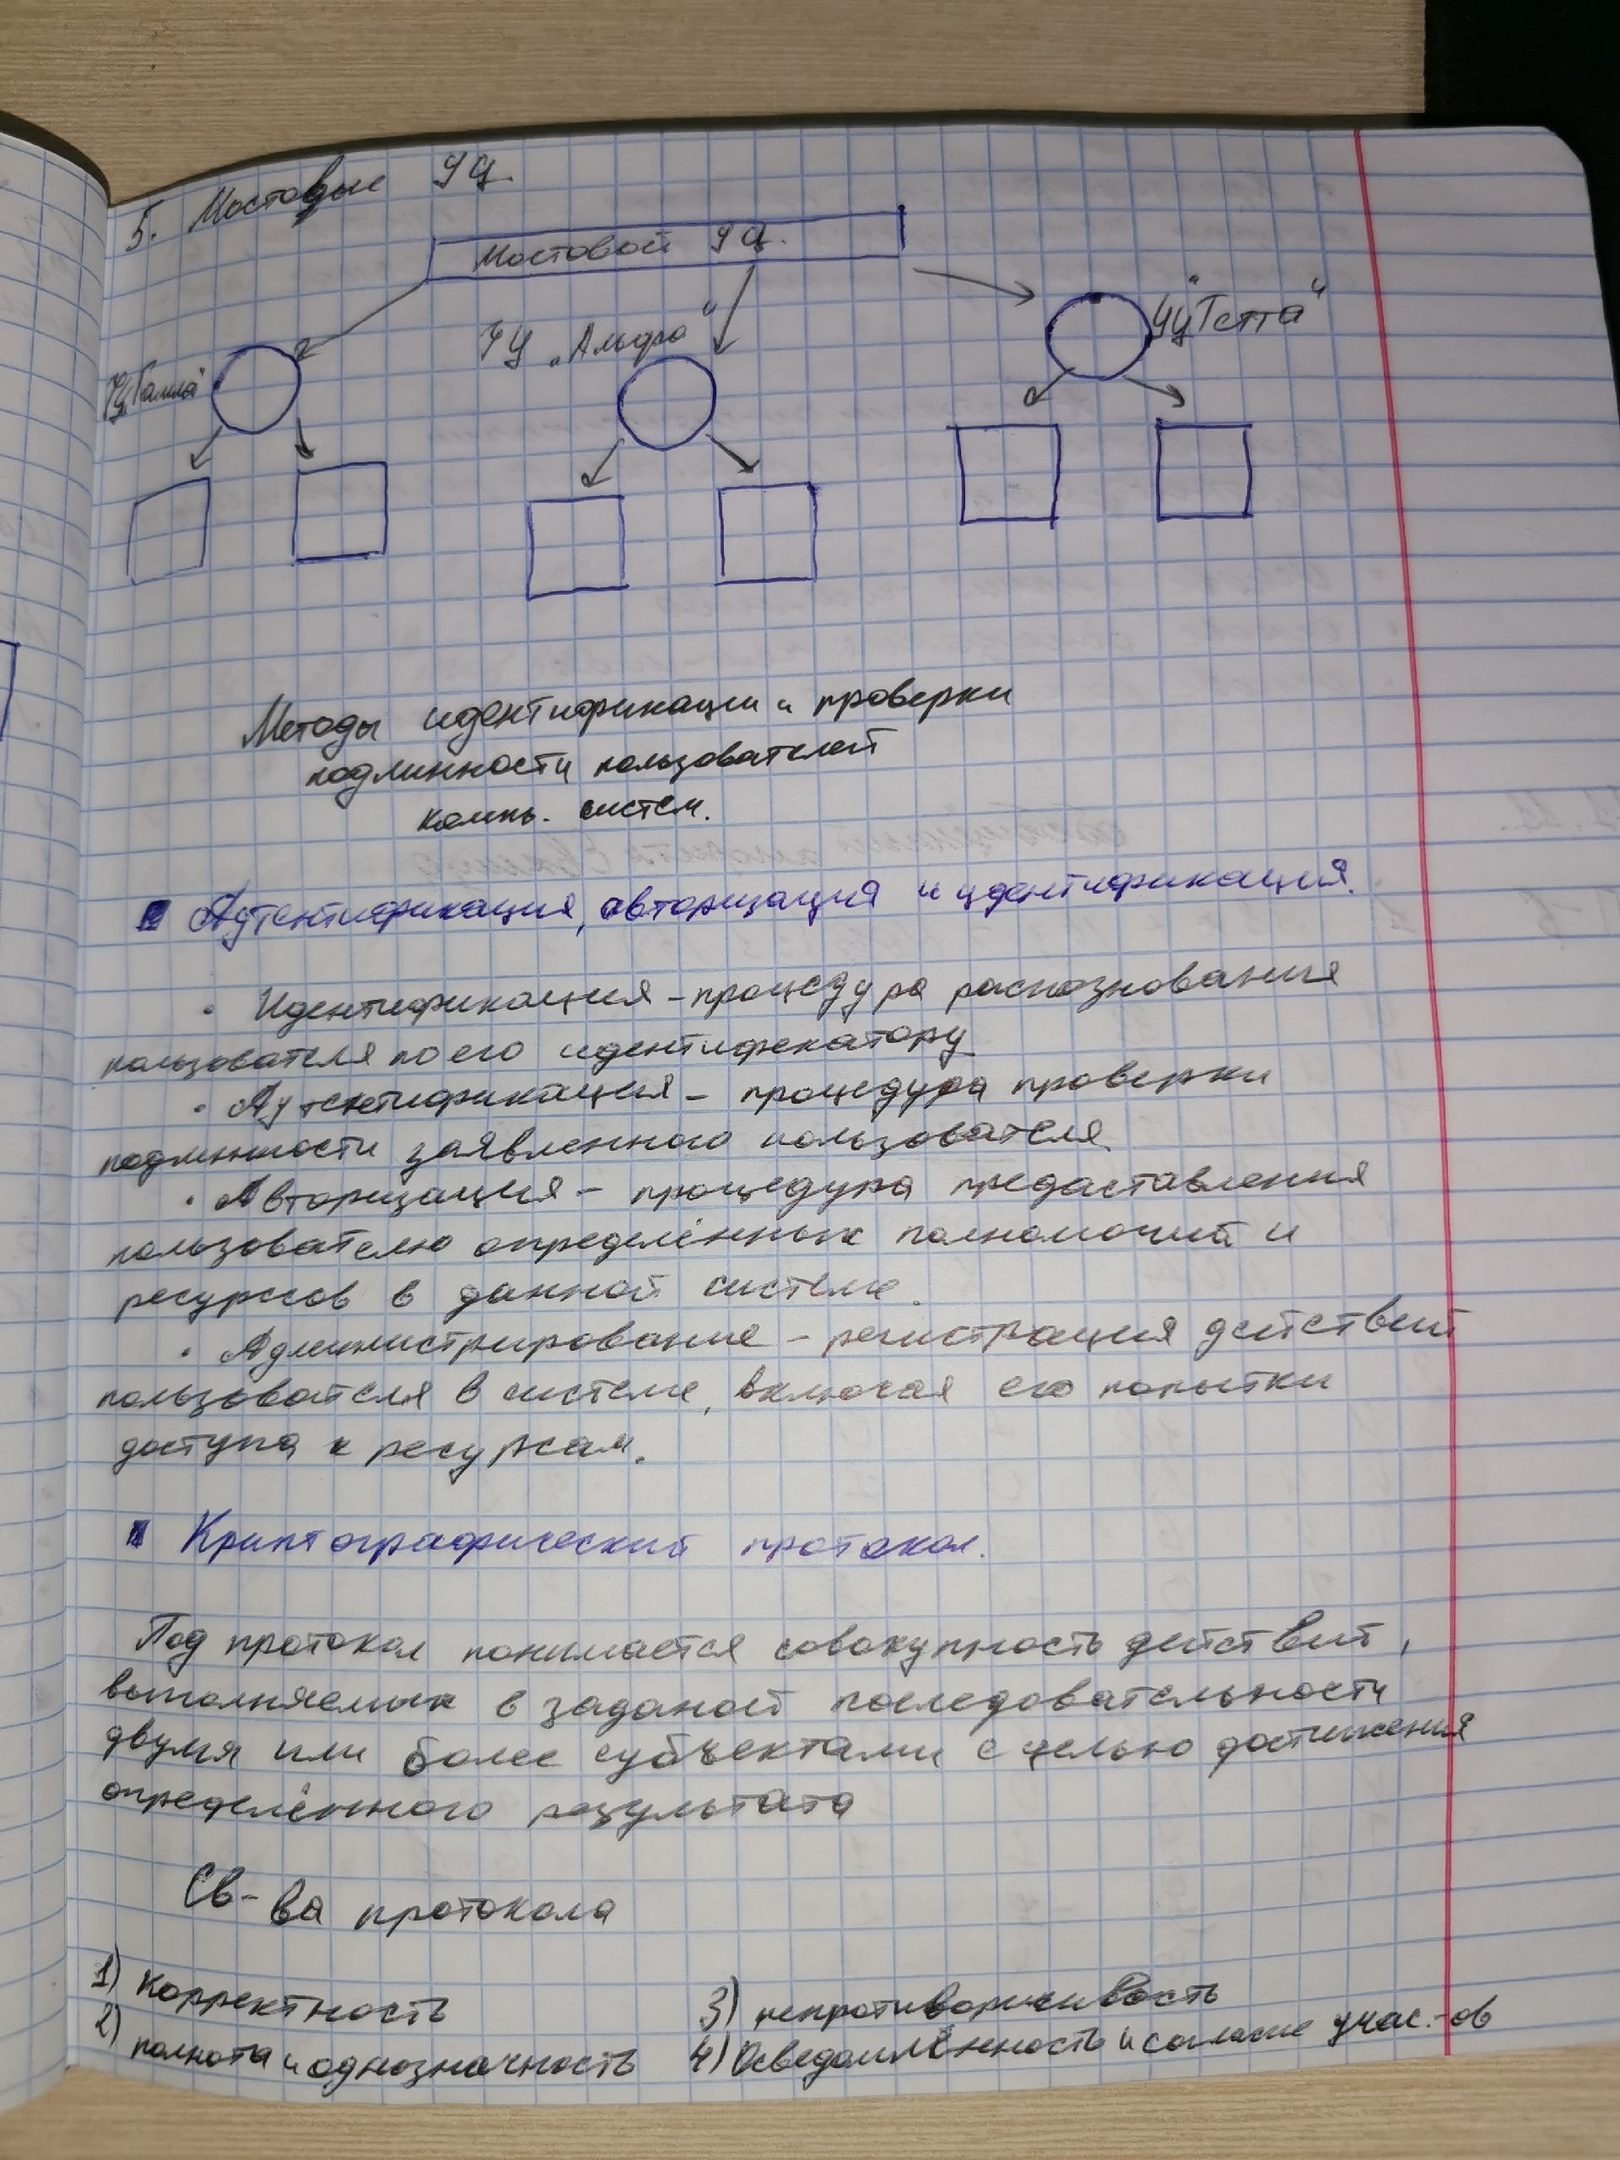 5. Мостовые УЦ.
Мостовой УЦ.
УЦ „Гамма"
УЦ „Альфа"
УЦ "Тетта"
Методы идентификации и проверки
подлинности пользователей
комп. систем.
Аутентификация, авторизация и идентификация.
• Идентификация – процедура распознования
пользователя по его идентификатору
• Аутентификация – процедура проверки
подлинности заявленного пользователя
• Авторизация – процедура предоставления
пользователю определённых полномочий и
ресурсов в данной системе.
• Администрирование – регистрация действий
пользователя в системе, включая его попытки
доступа к ресурсам.
Криптографический протокол.
Под протокол понимается совокупность действий,
выполняемых в заданой последовательности
двумя или более субъектами с целью достижения
определённого результата
Св-ва протокола
1) Корректность
2) полнота и однозначность
3) непротиворичивость
4) Осведомлённость и согласие учас.-ов